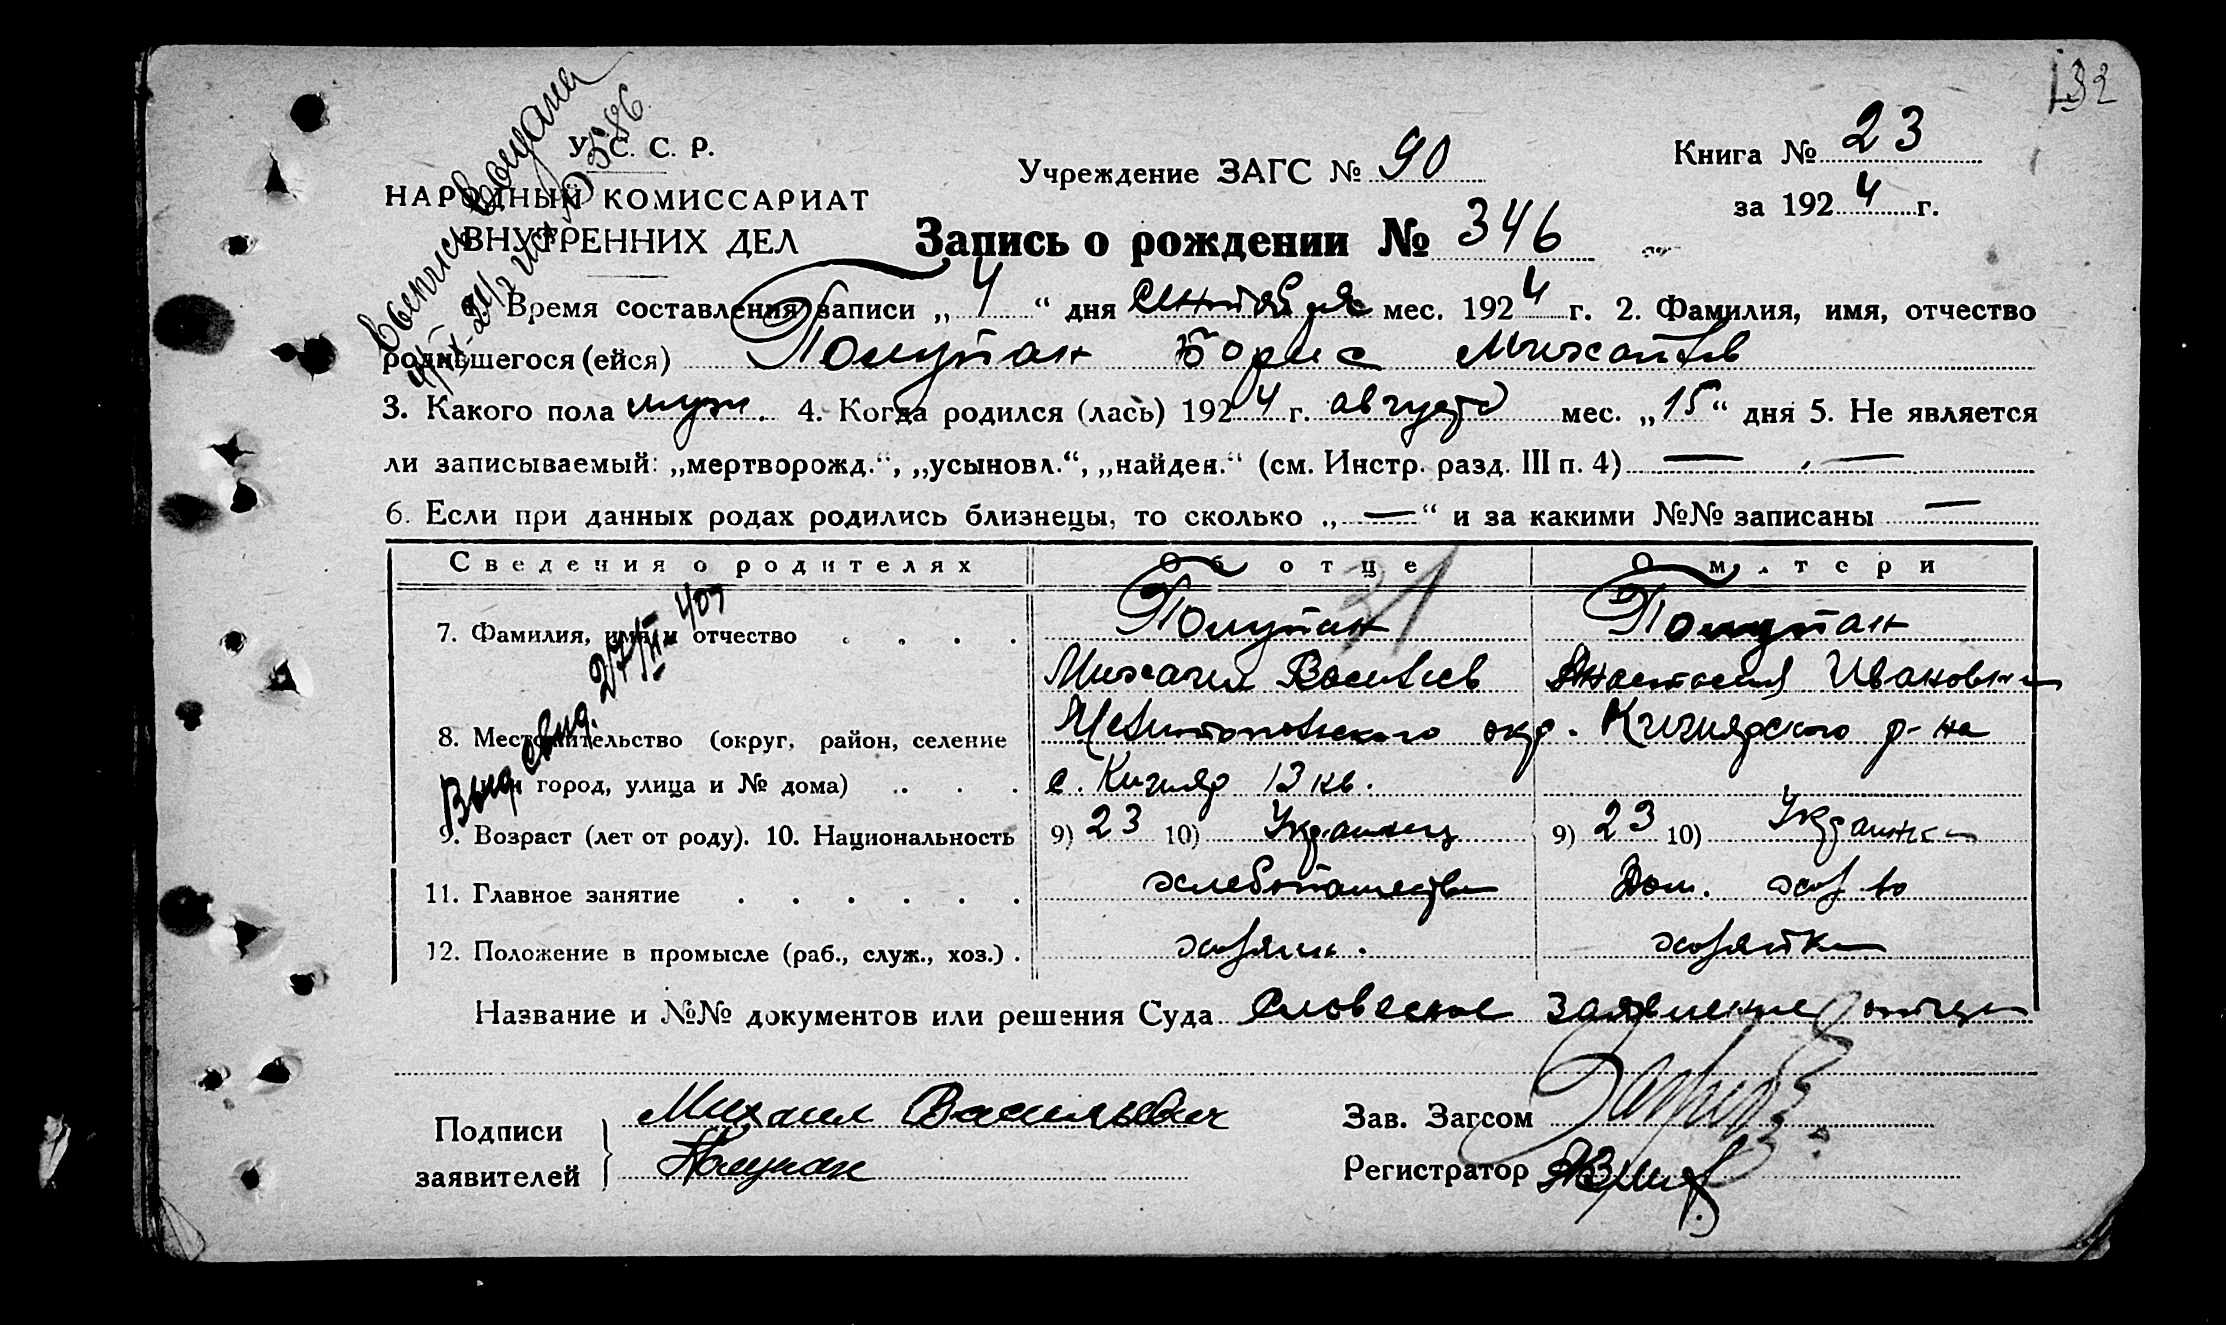 132
У. С. С. Р.
НАРОДНЫЙ КОМИССАРИАТ
ВНУТРЕННИХ ДЕЛ
Учреждение ЗАГС № 90
Книга № 23
за 1924 г.
Запись о рождении № 346
выдана
Время составления записи „ 4 “ дня сентября мес. 1924 г. 2. Фамилия, имя, отчество
родившегося (ейся) Полупан Борис Михайлов
3. Какого пола муж. 4. Когда родился (лась) 1924 г. августа мес. „15“ дня 5. Не является
ли записываемый: „мертворожд.“, „усыновл.“, „найден.“ (см. Инстр. разд. III п. 4) — , —
6. Если при данных родах родились близнецы, то сколько „—“ и за какими №№ записаны —
Сведения о родителях Об отце О матери
21
7. Фамилия, имя и отчество . . . . Полупан Полупан
Михаил Васильев Анастасия Ивановна
8. Местожительство (округ, район, селение Мелитопольского окр. Кизиярского р-на
или город, улица и № дома) . . . . с. Кизияр 13 кв.
Выд. свид. 27/II 409
9. Возраст (лет от роду). 10. Национальность 9) 23 10) Украинец 9) 23 10) Украинка
11. Главное занятие . . . . . . хлебопашество Дом. хоз-во
12. Положение в промысле (раб., служ., хоз.) . хозяин. хозяйка
Название и №№ документов или решения Суда Словесное заявление отца
Подписи заявителей } Михаил Васильевич
Полупан
Зав. Загсом
Регистратор